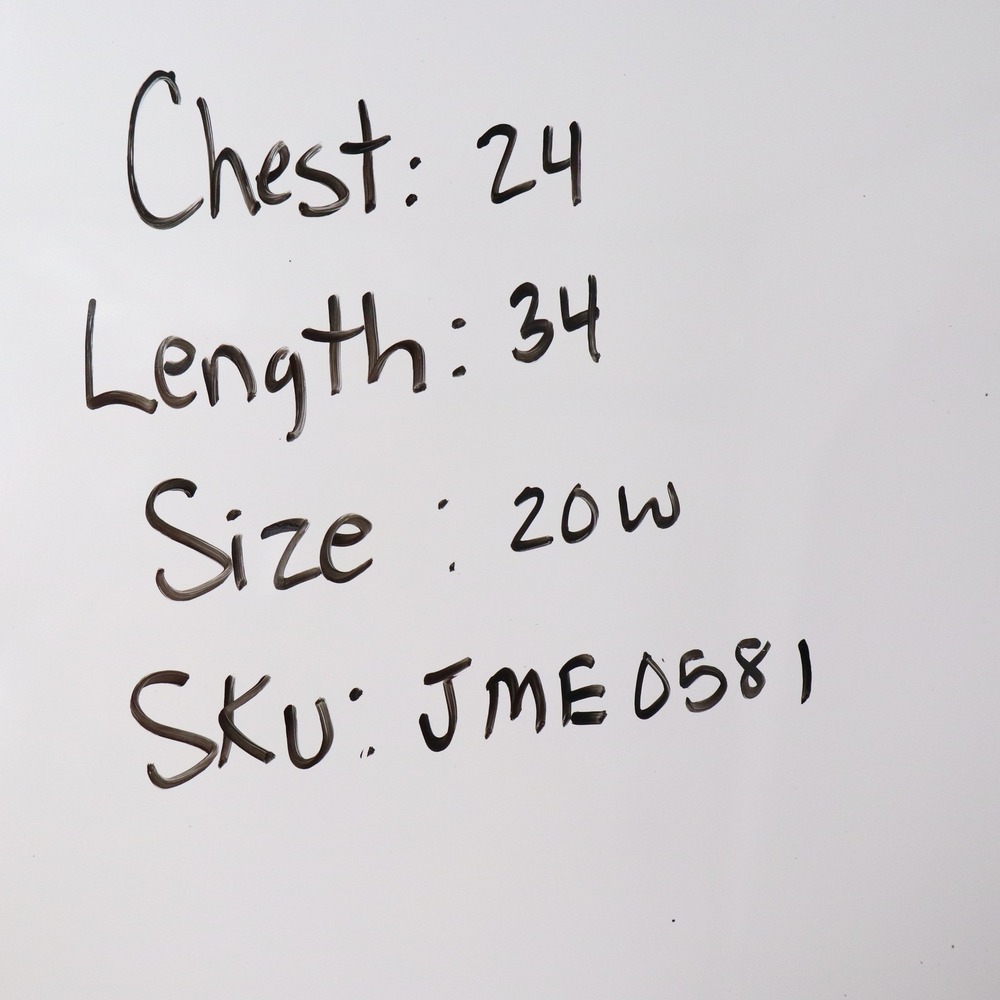 Chest: 24
Length: 34
Size: 20W
SKU: JME0581